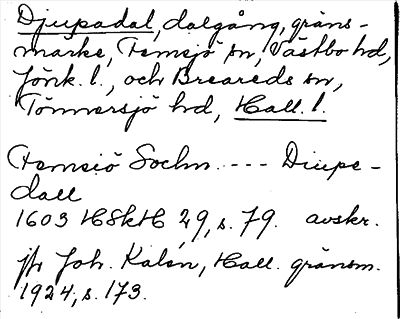 Djupadal, dalgång, gräns-
märke, Femsjö sn, Västbo hd,
Jönk. l., och Breareds sn,
Tönnersjö hd, Hall. l.
Femsiö Sochn --- Diupe-
dall
1603 HSkH 29, s. 79. avskr.
jfr Joh. Kalén, Hall. gränsm.
1924, s. 173.